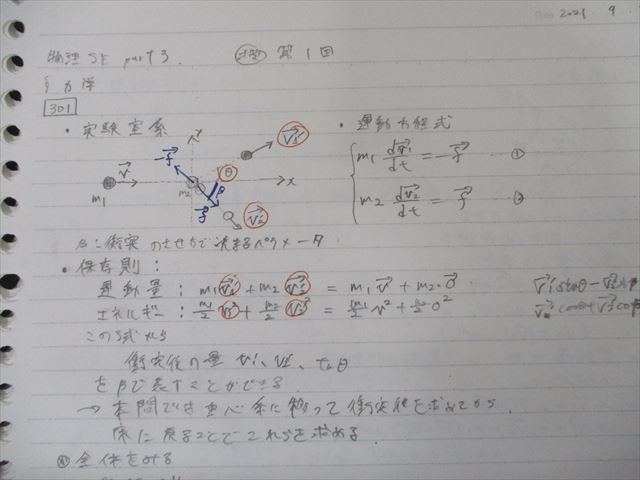 2021 9
物理SE part3. 第1回
§力学
301
・実験室系
・運動方程式
y
v₁'
-f
θ
v
m₁
m₂
β
x
f
v₂'
m₁ dv₁/dt = -f ①
m₂ dv₂/dt = f ②
β:衝突のさせ方で決まるパラメータ
・保存則:
運動量: m₁v₁' + m₂v₂' = m₁v + m₂·0
エネルギー: m₁/2 v₁'² + m₂/2 v₂'² = m₁/2 v² + m₂/2 0²
この3式から
衝突後の量 v₁', v₂', θ
をβで表すことができる
→ 本問では重心系に移って衝突後を求めてから、
系に戻ることでこれらを求める
全体をみる